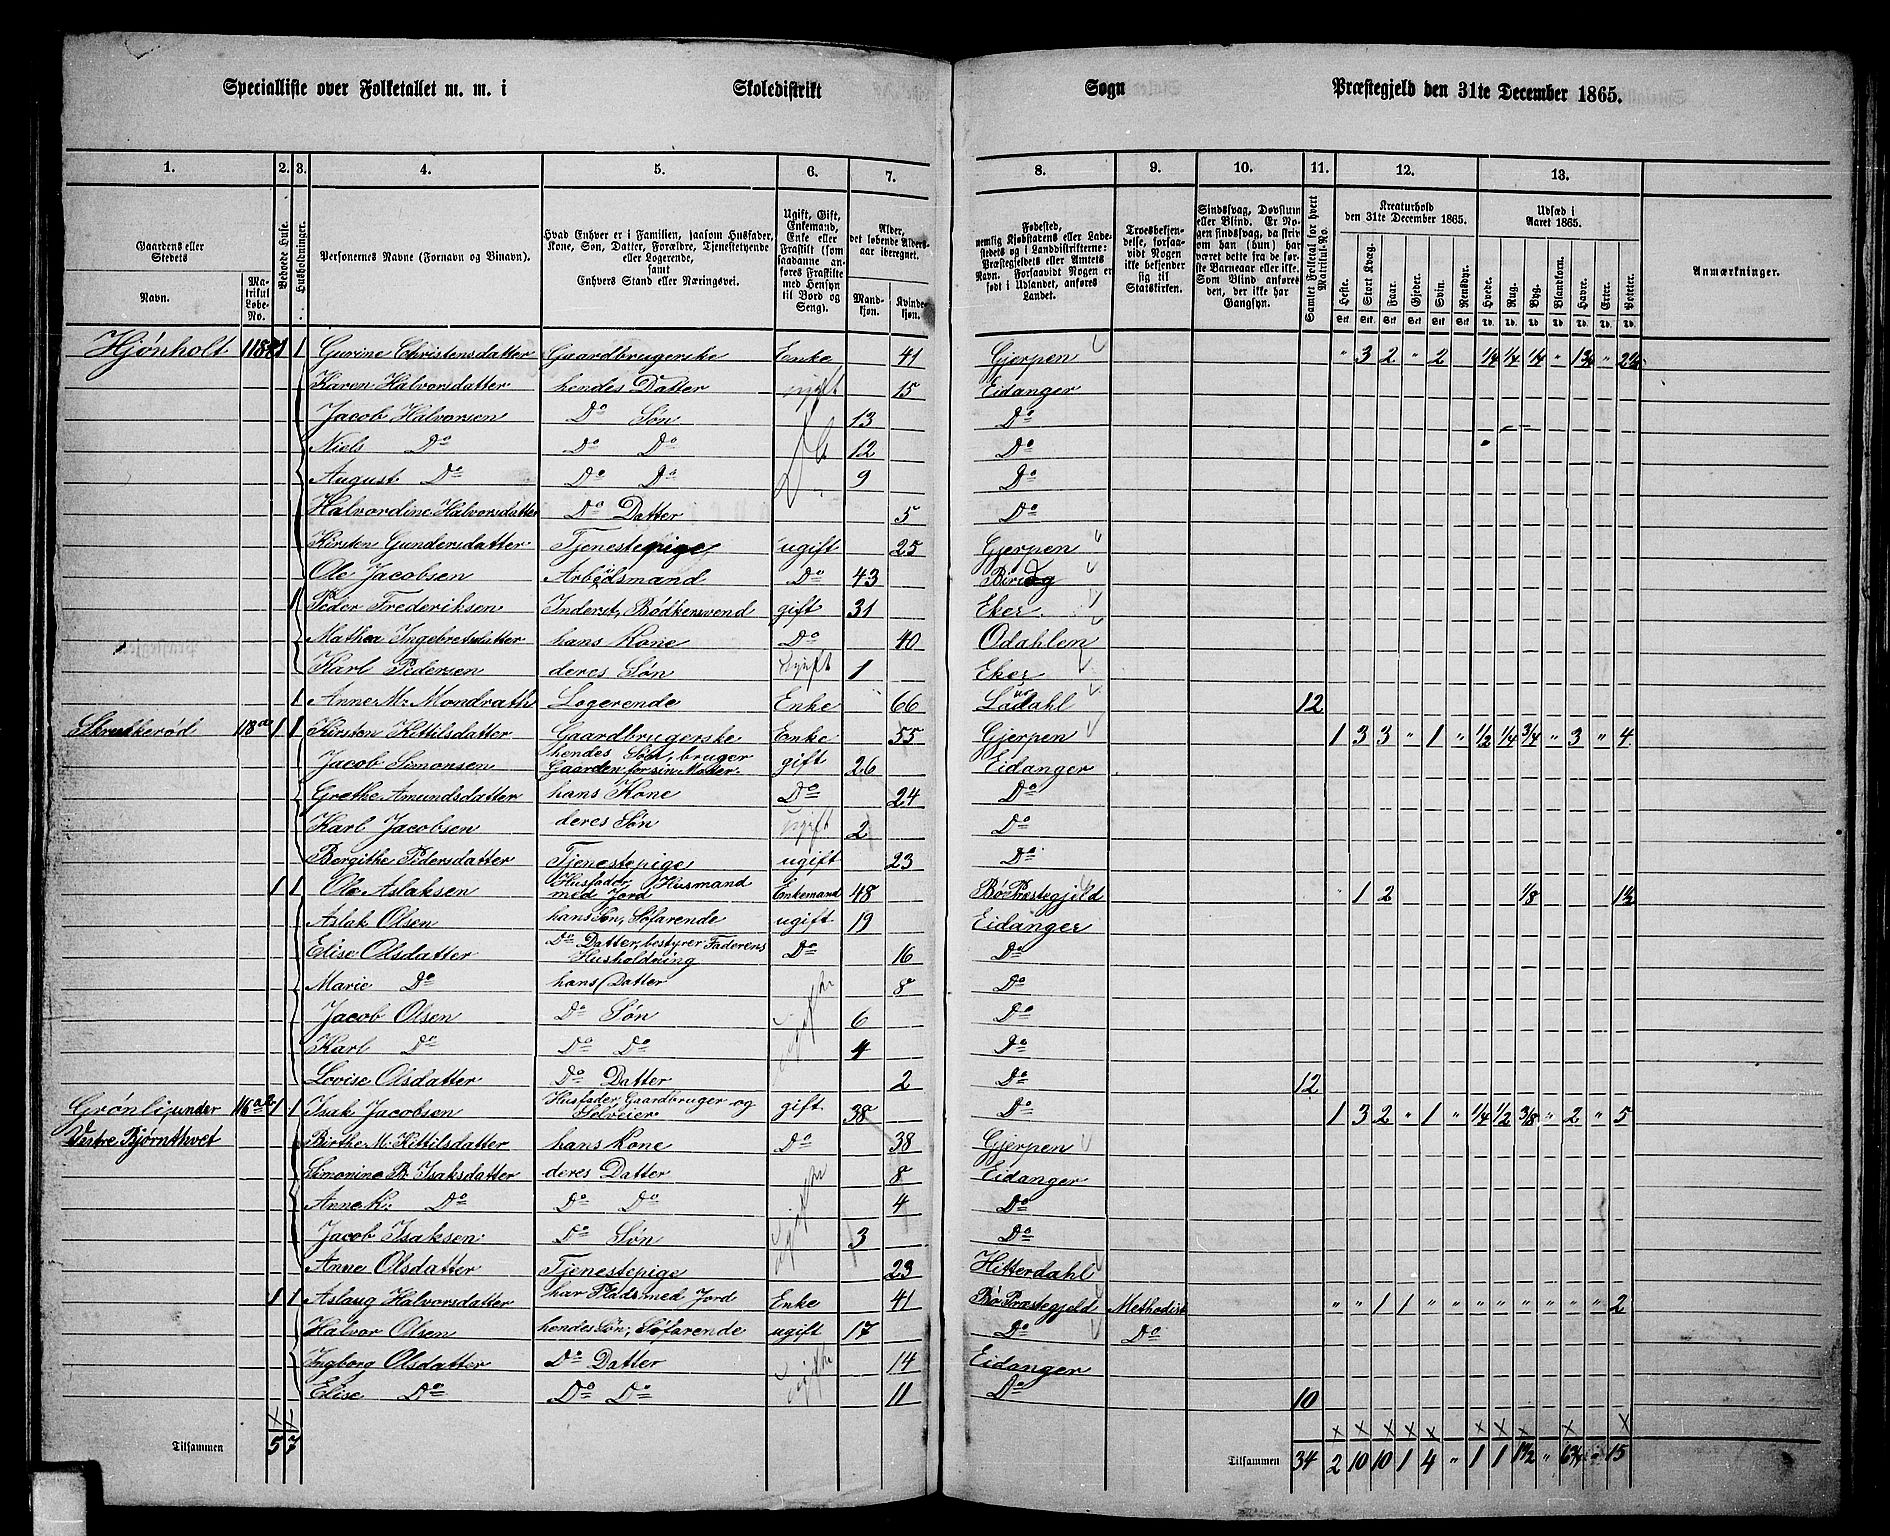 Specialliste over Folketallet m. m. i Skoledistrikt Sogn Præstegjeld den 31te December 1865.
1. 2. 3. 4. 5. 6. 7. 8. 9. 10. 11. 12. 13.
Gaardens eller Stedets
Navn.
Matrikul Løbe-No.
Beboede Huse.
Husholdninger.
Personernes Navne (Fornavn og Binavn).
Hvad Enhver er i Familien, saasom Husfader, Kone, Søn, Datter, Forældre, Tjenestetyende eller Logerende, samt Enhvers Stand eller Næringsvei.
Ugift, Gift, Enkemand, Enke eller Fraskilt (som saadanne anføres Fraskilte med Hensyn til Bord og Seng).
Alder, det løbende Aldersaar iberegnet.
Mandkjøn. Kvindekjøn.
Fødested, nemlig Kjøbstadens eller Ladestedets og i Landdistrikterne: Præstegjeldets eller Amtets Navn. Forsaavidt Nogen er født i Udlandet, anføres Landet.
Troesbekjendelse, forsaavidt Nogen ikke bekjender sig til Statskirken.
Sindssvag, Døvstum eller Blind. Er Nogen sindssvag, da skrives om han (hun) har været dette fra de første Barneaar eller ikke. Som Blind anføres den, der ikke har Gangsyn.
Samlet Folketal for hvert Matrikul-No.
Kreaturhold den 31te December 1865.
Heste. Stort Kvæg. Faar. Gjeder. Svin. Rensdyr.
Udsæd i Aaret 1865.
Hvede. Rug. Byg. Blandkorn. Havre. Erter. Poteter.
Anmærkninger.
Hjønholt 118 1 1 Gurine Christensdatter Gaardbrugerske Enke 41 Gjerpen " 3 2 " 2 1/4 1/4 1/4 " 1 3/4 " 2 1/2
Karen Halvorsdatter hendes Datter ugift 15 Eidanger
Jacob Halvorsen Do Søn 13 Do
Niels Do Do Do 12 Do
August Do Do Do 9 Do
Halvordine Halvorsdatter Do Datter 5 Do
Kirsten Gundersdatter Tjenestepige ugift 25 Gjerpen
Ole Jacobsen Arbeidsmand Do 43
1 Peder Frederiksen Inderst, Bødkersvend gift 31 Eker
Mathea Ingebretsdatter hans Kone Do 40 Odahlen
Karl Pedersen deres Søn ugift 1 Eker
1 Anne M. Mondrath Logerende Enke 66 Laurdahl 12
Skrukkerød 118a 1 1 Kirsten Kittilsdatter Gaardbrugerske Enke 55 Gjerpen 1 3 3 " 1 " 1/2 1/4 3/4 " 3 " 4
Jacob Simonsen hendes Søn, bruger Gaarden for sin Moder gift 26 Eidanger
Grethe Amundsdatter hans Kone Do 24 Do
Karl Jacobsen deres Søn ugift 2 Do
Bergithe Pedersdatter Tjenestepige ugift 23 Do
1 1 Ole Aslaksen Husfader, Husmand med Jord Enkemand 48 Bø Præstegjeld " 1 2 1/8 1 1/2
Aslak Olsen hans Søn, Søfarende ugift 19 Eidanger
Elise Olsdatter Do Datter, bestyrer Faderens Husholdning Do 16 Do
Marie Do hans Datter ugifte 8 Do
Jacob Olsen Do Søn 6 Do
Karl Do Do Do 4 Do
Lovise Olsdatter Do Datter 2 Do 12
Grønli under 116a2 1 1 Isak Jacobsen Husfader, Gaardbruger og Selveier gift 38 Do 1 3 2 " 1 " 1/4 1/2 3/8 " 2 " 5
Vestre Bjørnthvet Birthe M. Kittilsdatter hans Kone Do 38 Gjerpen
Simonine B. Isaksdatter deres Datter ugifte 8 Eidanger
Anne K. Do Do Do 4 Do
Jacob Isaksen Do Søn 3 Do
Anne Olsdatter Tjenestepige 23 Hitterdahl
1 1 Aslaug Halvorsdatter har Plads med Jord Enke 41 Bø Præstegjeld Methodist " " 1 1 " " " " " " " " 2
Halvor Olsen hendes Søn, Søfarende ugift 17 Do Do
Ingborg Olsdatter Do Datter ugifte 14 Eidanger
Elise Do Do Do 11 Do 10
Tilsammen 5 7 Tilsammen 34 2 10 10 1 4 " 1 1 1 1/2 " 6 3/4 " 15